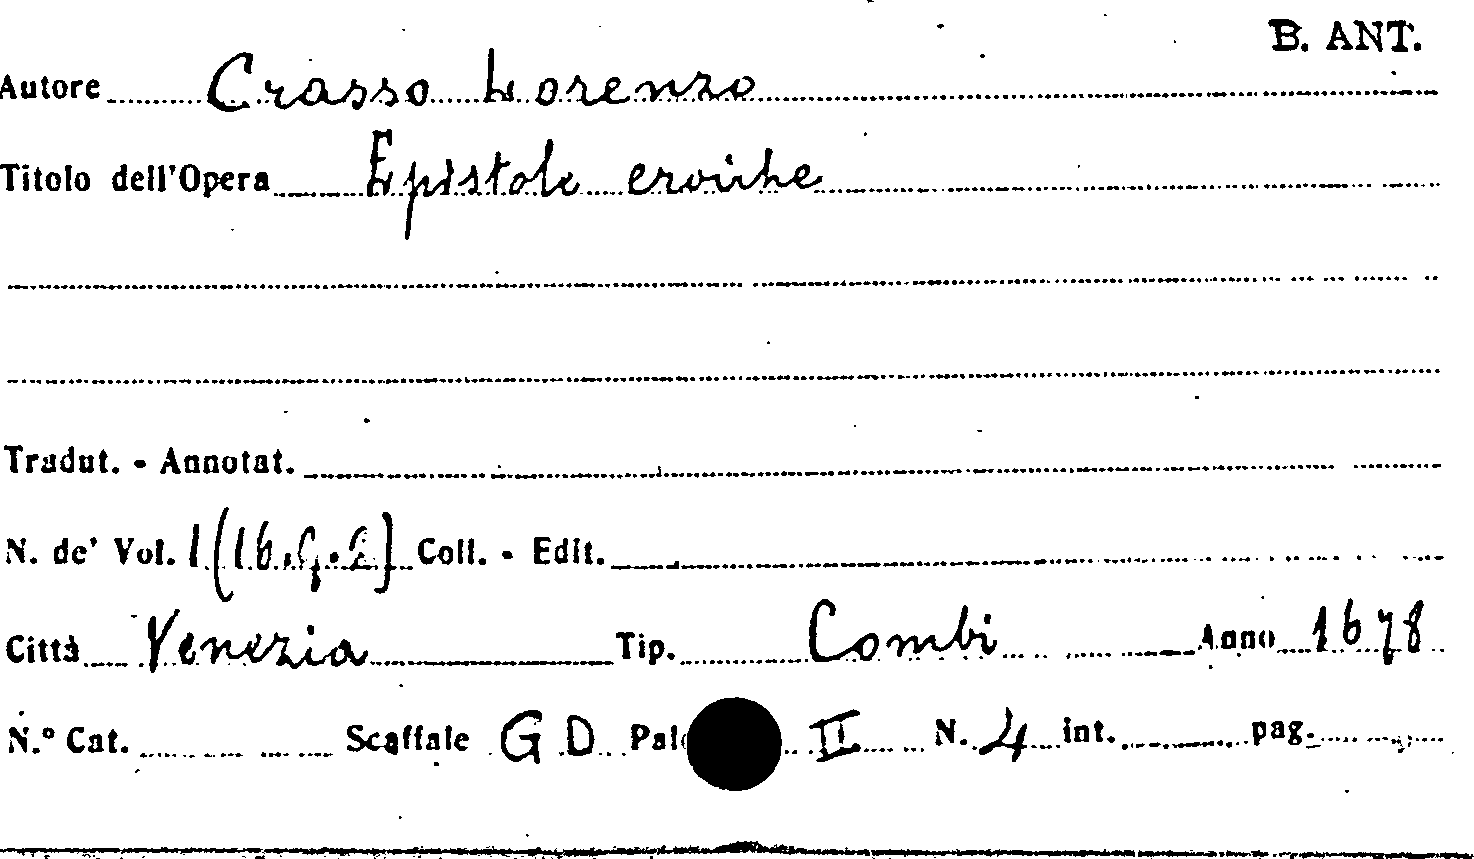 B. ANT.
Autore Crasso Lorenzo
Titolo dell'Opera Epistole eroiche
Tradut. - Annotat.
N. de' Vol. 1 Coll. - Edit.
Città Venezia Tip. Combi Anno 1678
N.° Cat. Scaffale G D II N. 4 int. pag.